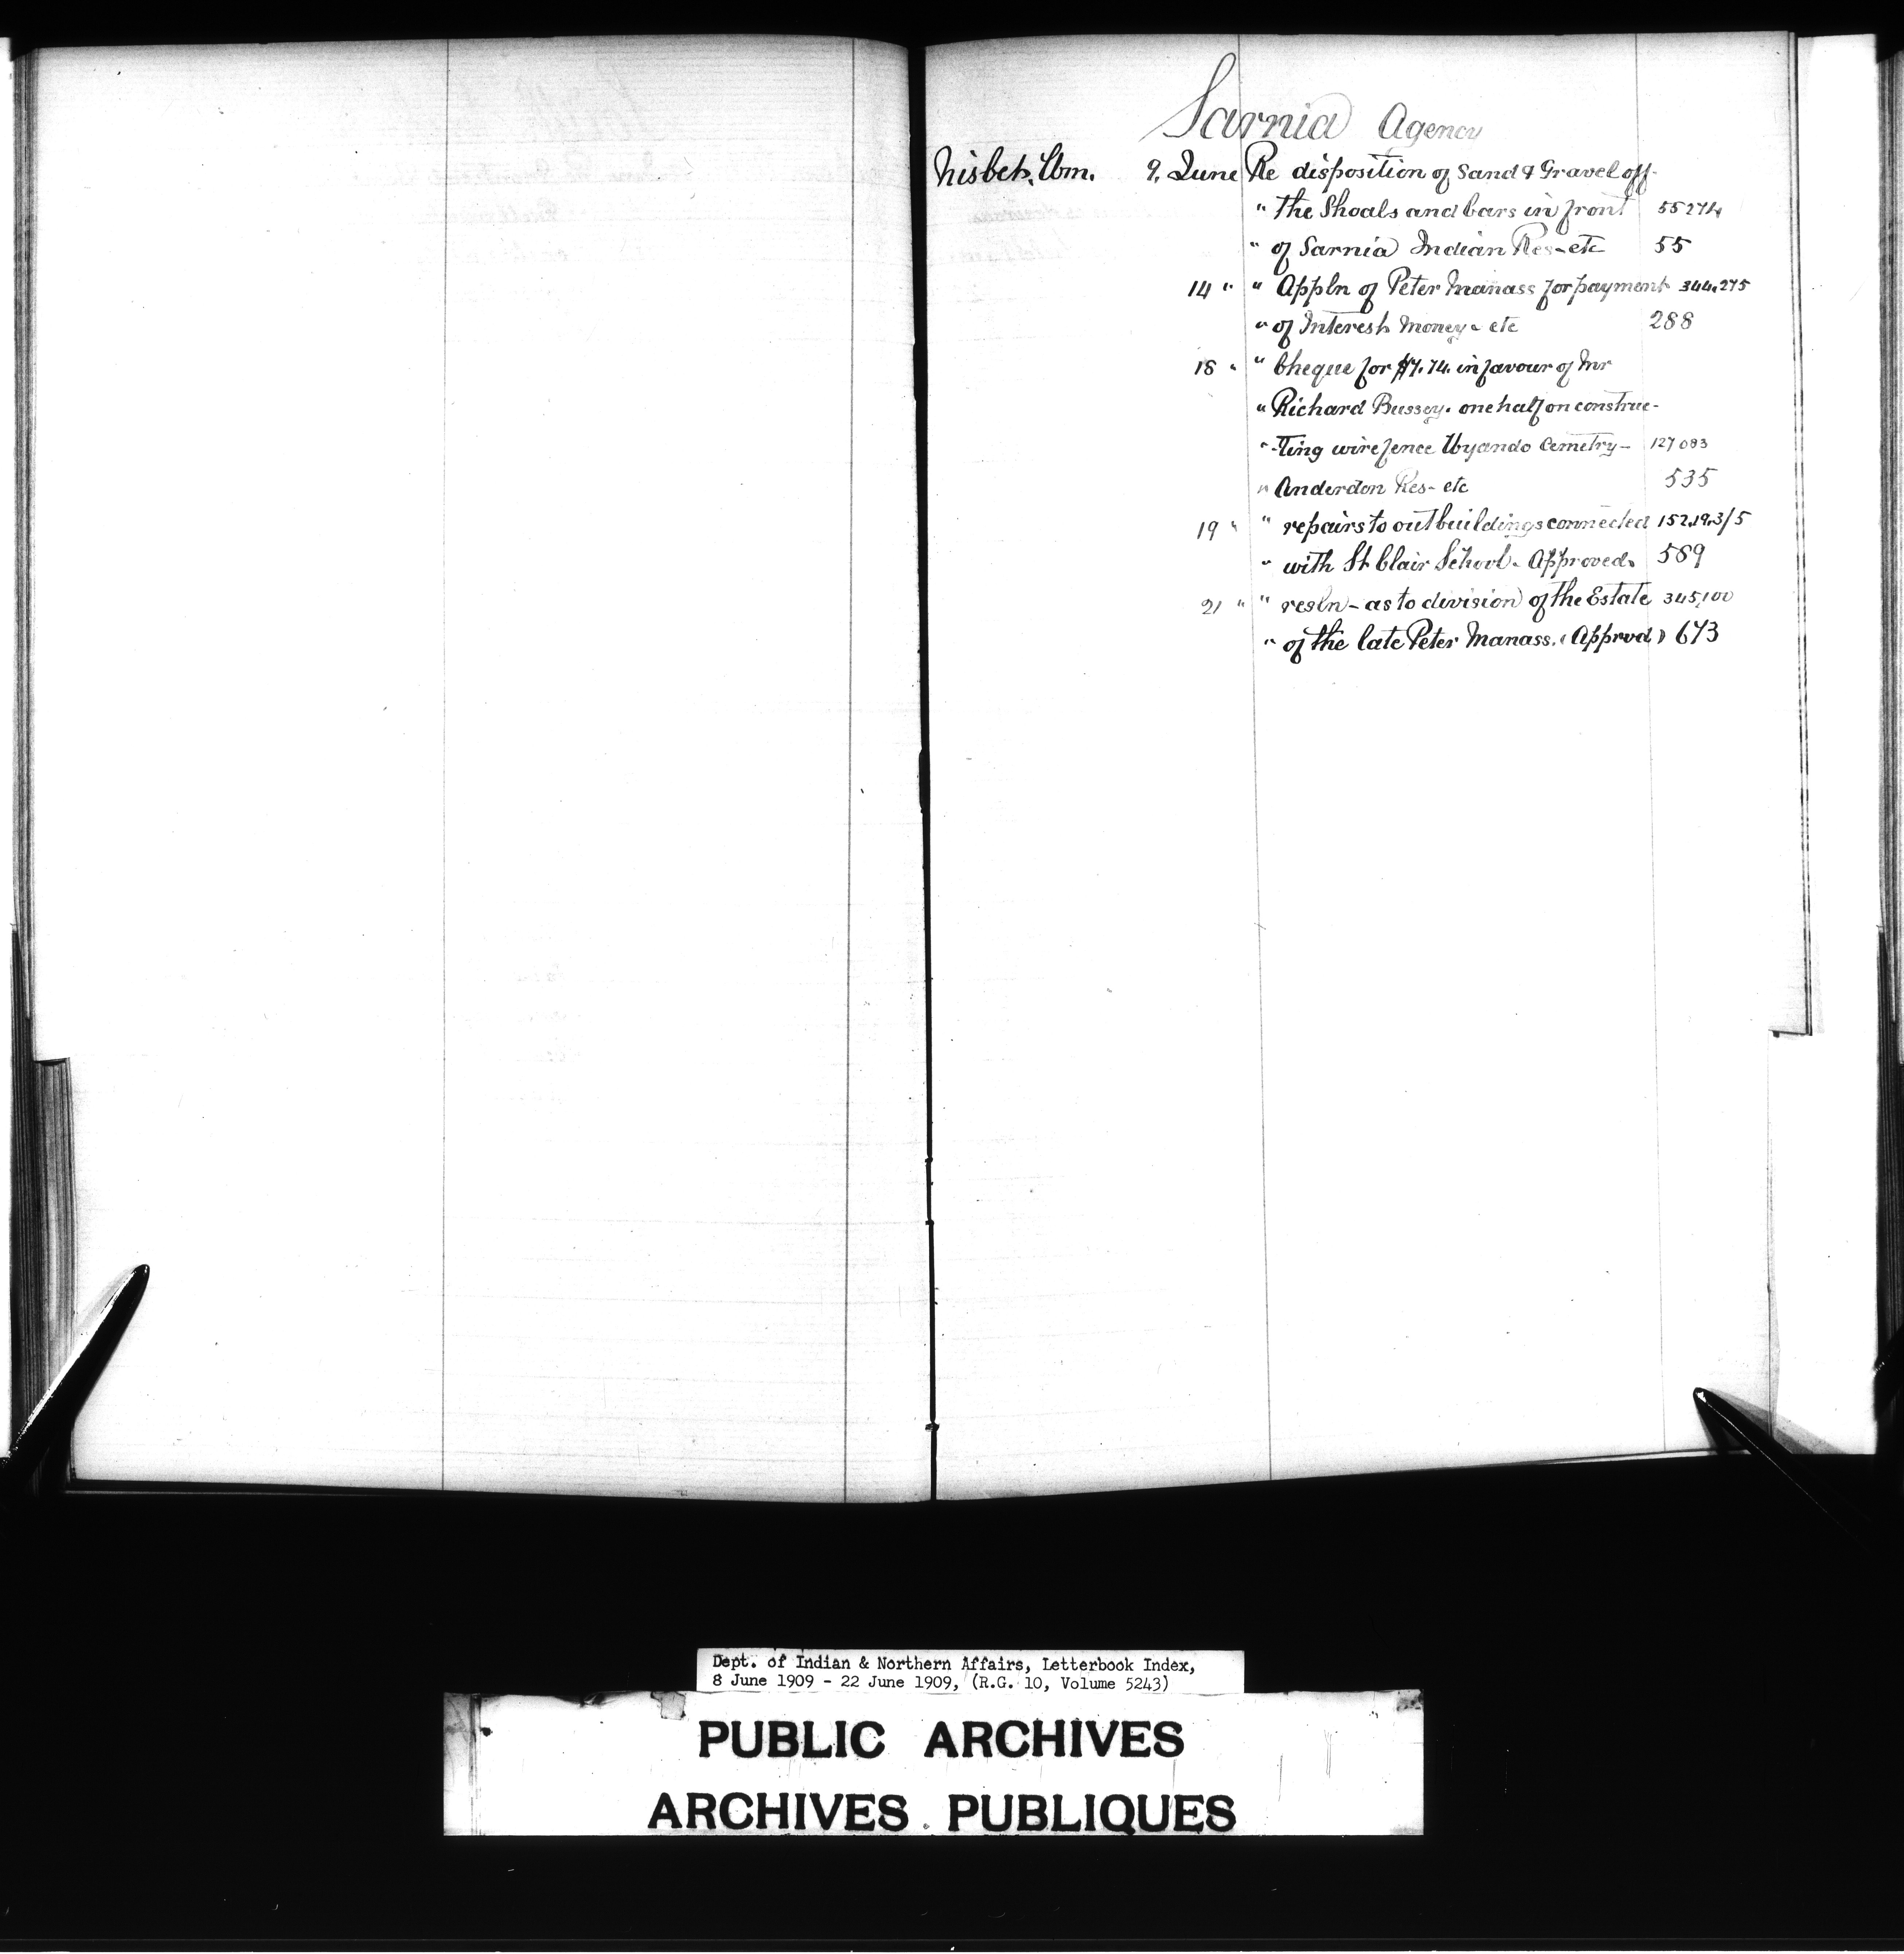 Sarnia Agency
Nisbet, Wm. 9. June Re disposition of Sand & Gravel off-
" the Shoals and bars in front 55274
" of Sarnia Indian Res- etc 55
14 " " Appln of Peter Manass for payment 344,275
" of Interest Money- etc 288
18 " " Cheque for $7.74. in favour of Mr
" Richard Bussey. one half on construc-
" -ting wire fence Wyando Cemetry- 127083
" Anderdon Res- etc 535
19 " " repairs to outbuildings connected 152,19,3/5
" with St Clair School- Approved. 589
21 " " resln- as to division of the Estate 345,100
" of the late Peter Manass. (Approd) 673
Dept. of Indian & Northern Affairs, Letterbook Index,
8 June 1909 - 22 June 1909, (R.G. 10, Volume 5243)
PUBLIC ARCHIVES
ARCHIVES PUBLIQUES